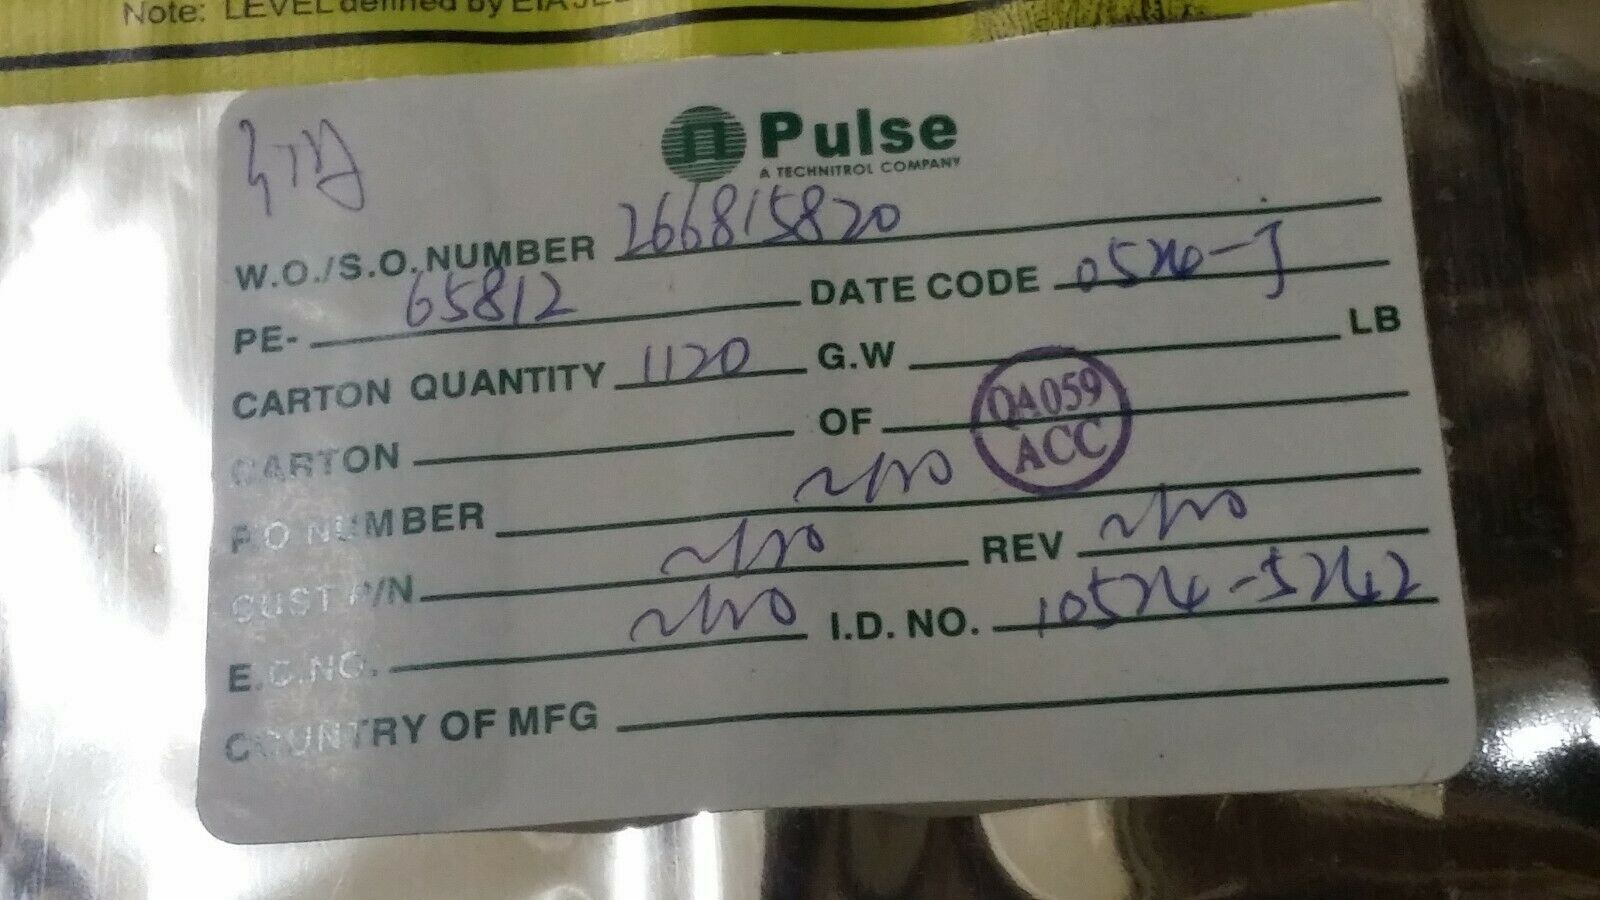 Note: LEVEL defined by EIA JE
Pulse
A TECHNITROL COMPANY
W.O./S.O. NUMBER 266815820
PE- 65812 DATE CODE
CARTON QUANTITY 1120 G.W LB
CARTON OF
QA059
ACC
P.O NUMBER
CUST P/N REV
E.C.NO. I.D. NO.
COUNTRY OF MFG